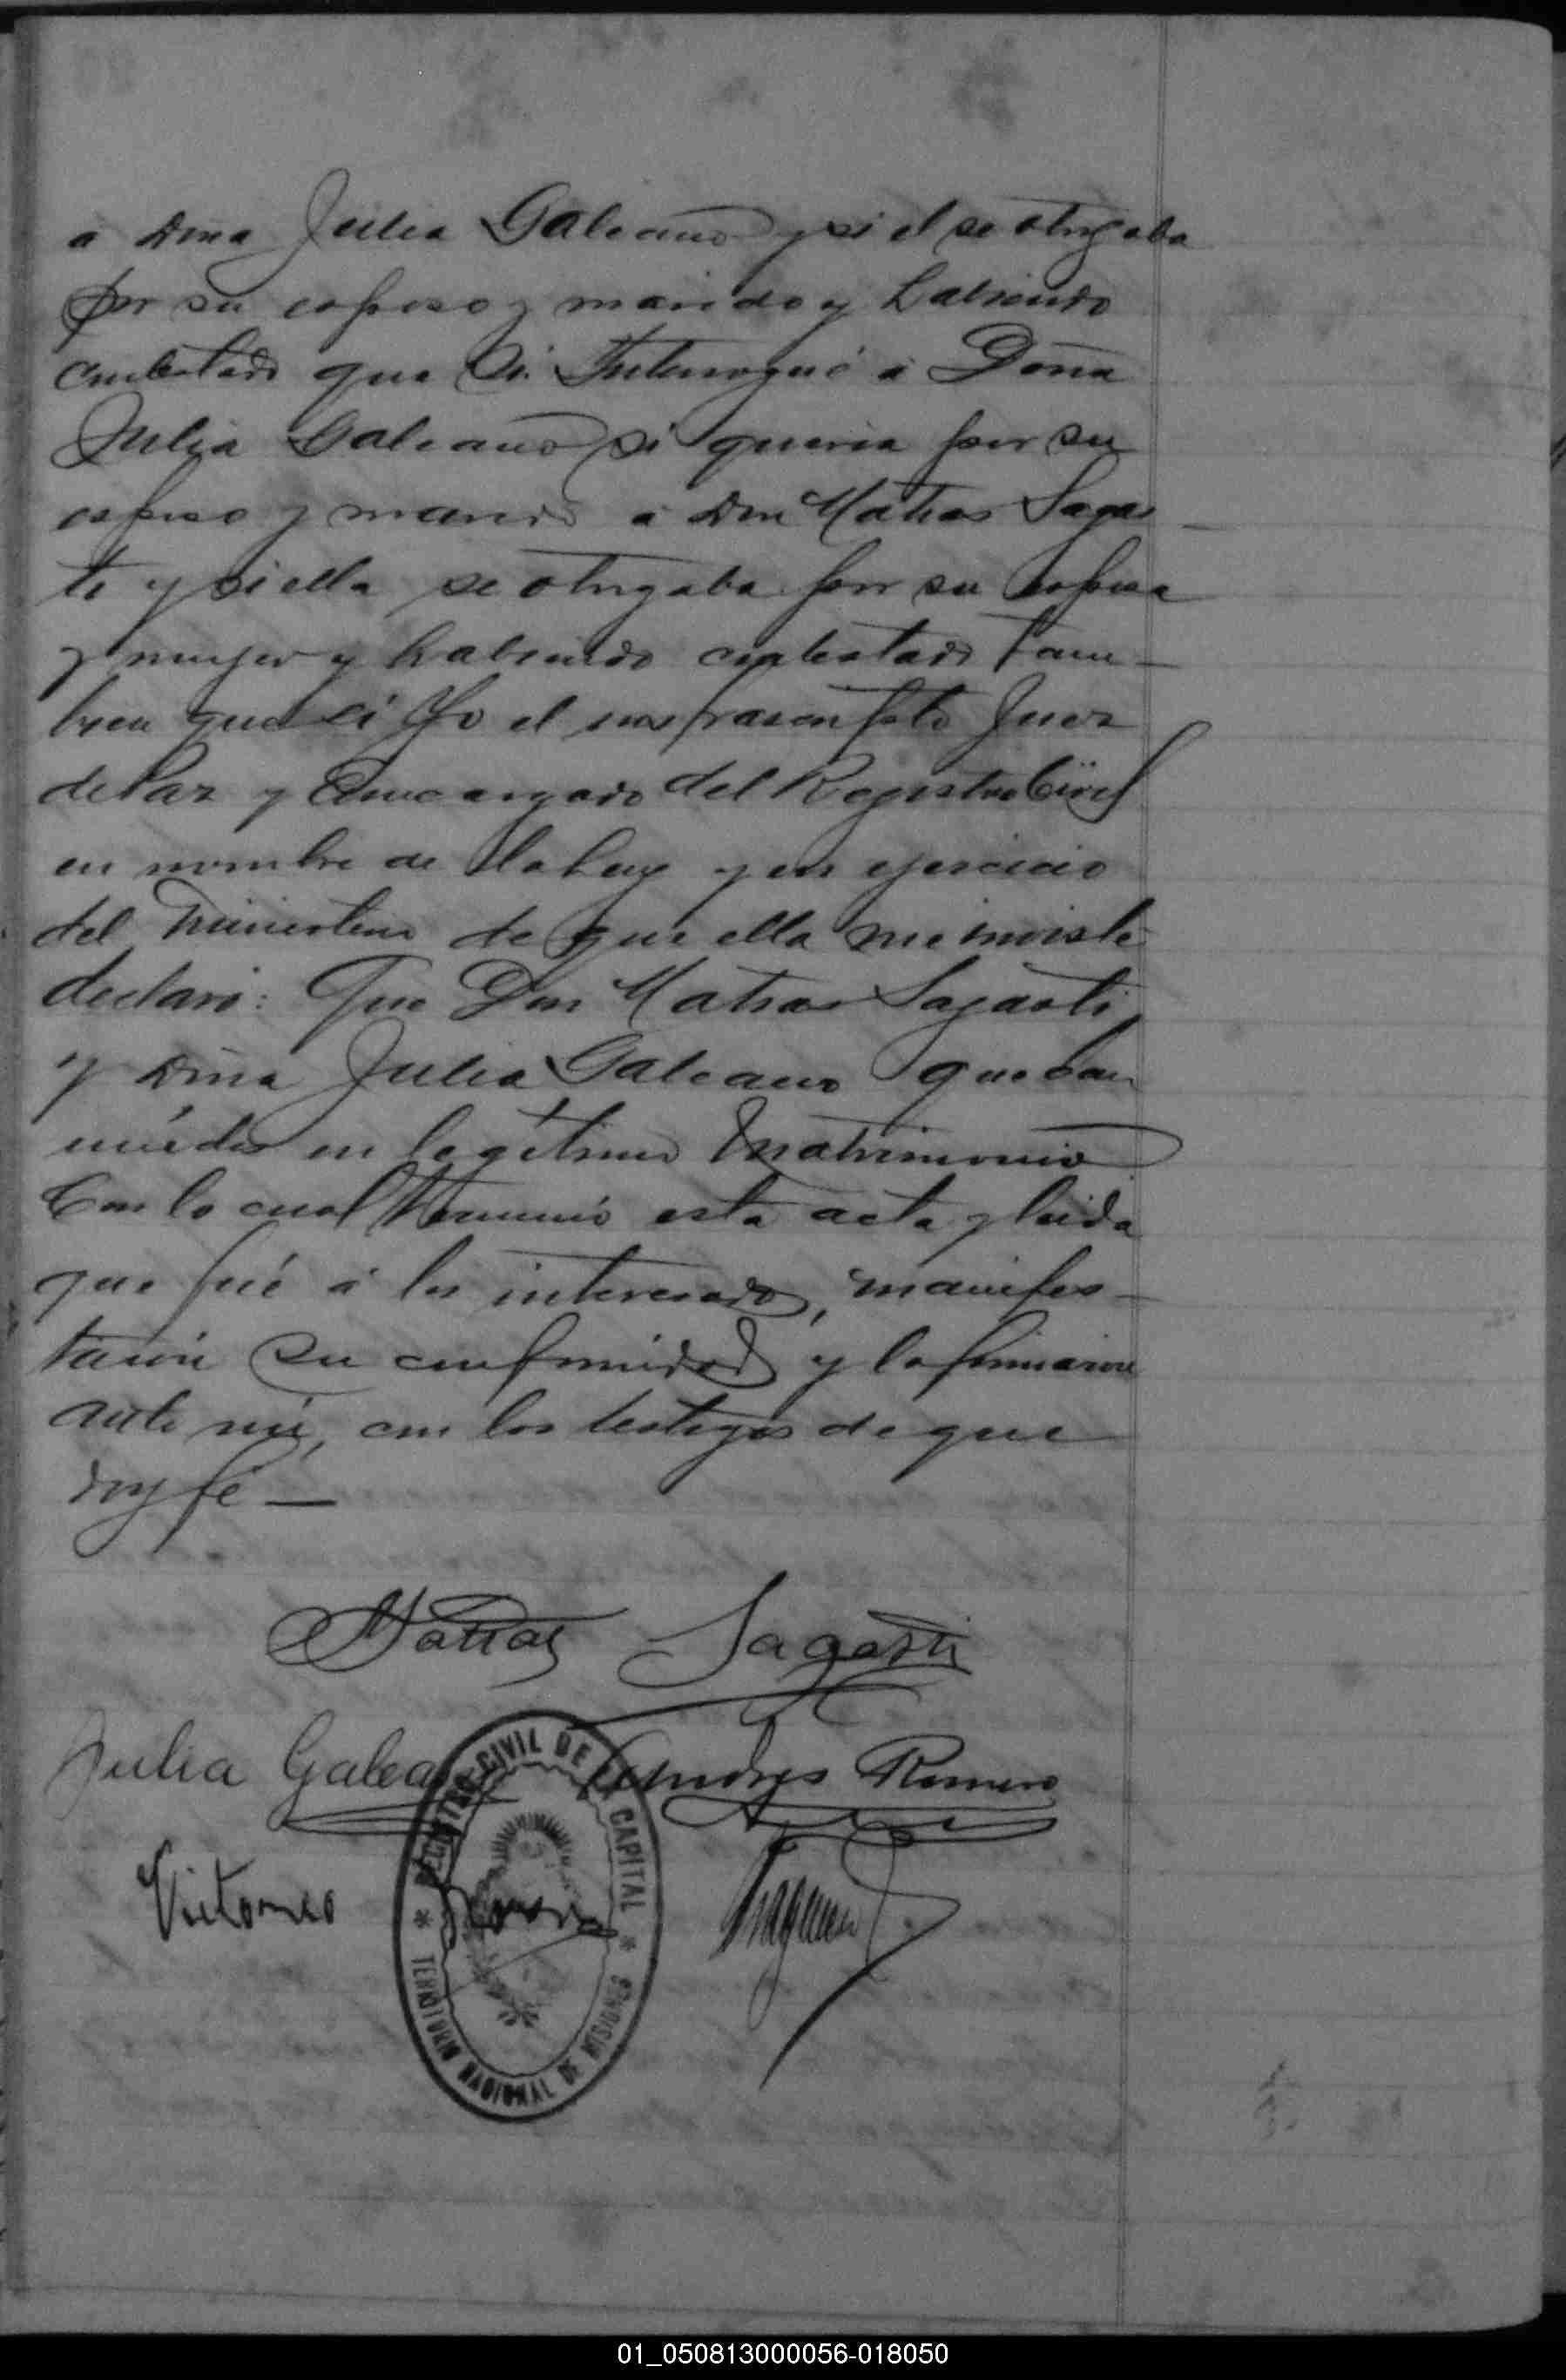 a Dona Julia Galeano y si el se otorgaba
por su esposo y marido y habiendo
contestado que si. Interrogué á Doña
Julia Galeano si queria por su
esposo y marido a Don Matias Sagas
ti y si ella se otorgaba por su esposa
y mujer y habiendo contestado tam-
bien que sí Yo el Juez
de Paz y Encargado del Registro Civil
en nombre de la Ley y en ejercicio
del ministerio de que ella me inviste
declaro: Que Don Matias Sagasti
y Dona Julia Galeano quedan
unidos en legitimo Matrimonio
Con lo cual terminó esta acta y leida
que fué á los interesados, manifes-
taron su conformidad y la firmaron
ante mí, con los testigos de que
doy fé —
Matias Sagasti
Julia Galeano Andres Romero
Victorico
REGISTRO CIVIL DE LA CAPITAL
* TERRITORIO NACIONAL DE MISIONES *
01_050813000056-018050